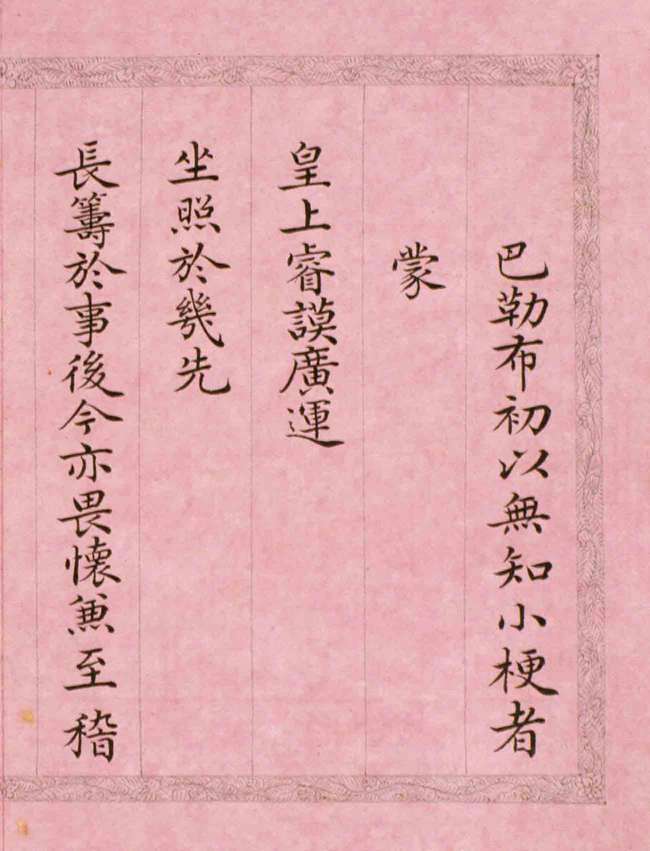 巴勒布初以無知小梗者
蒙
皇上睿謨廣運
坐照於幾先
長籌於事後今亦畏懷兼至稽